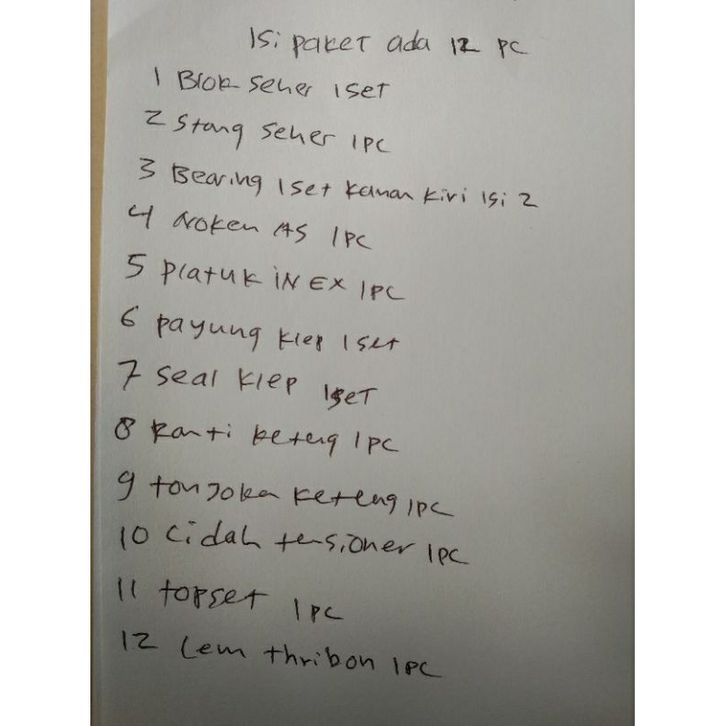 Isi paket ada 12 PC
1 Blok seher 1 set
2 Stang Seher 1 PC
3 Bearing 1 set kanan kiri isi 2
4 Noken AS 1 PC
5 platuk iN EX 1 PC
6 payung klep 1 set
7 seal klep 1 set
8 Ranti keteng 1 PC
9 tonjokan keteng 1 PC
10 Cidah tensioner 1 PC
11 topset 1 PC
12 Lem thribon 1 PC